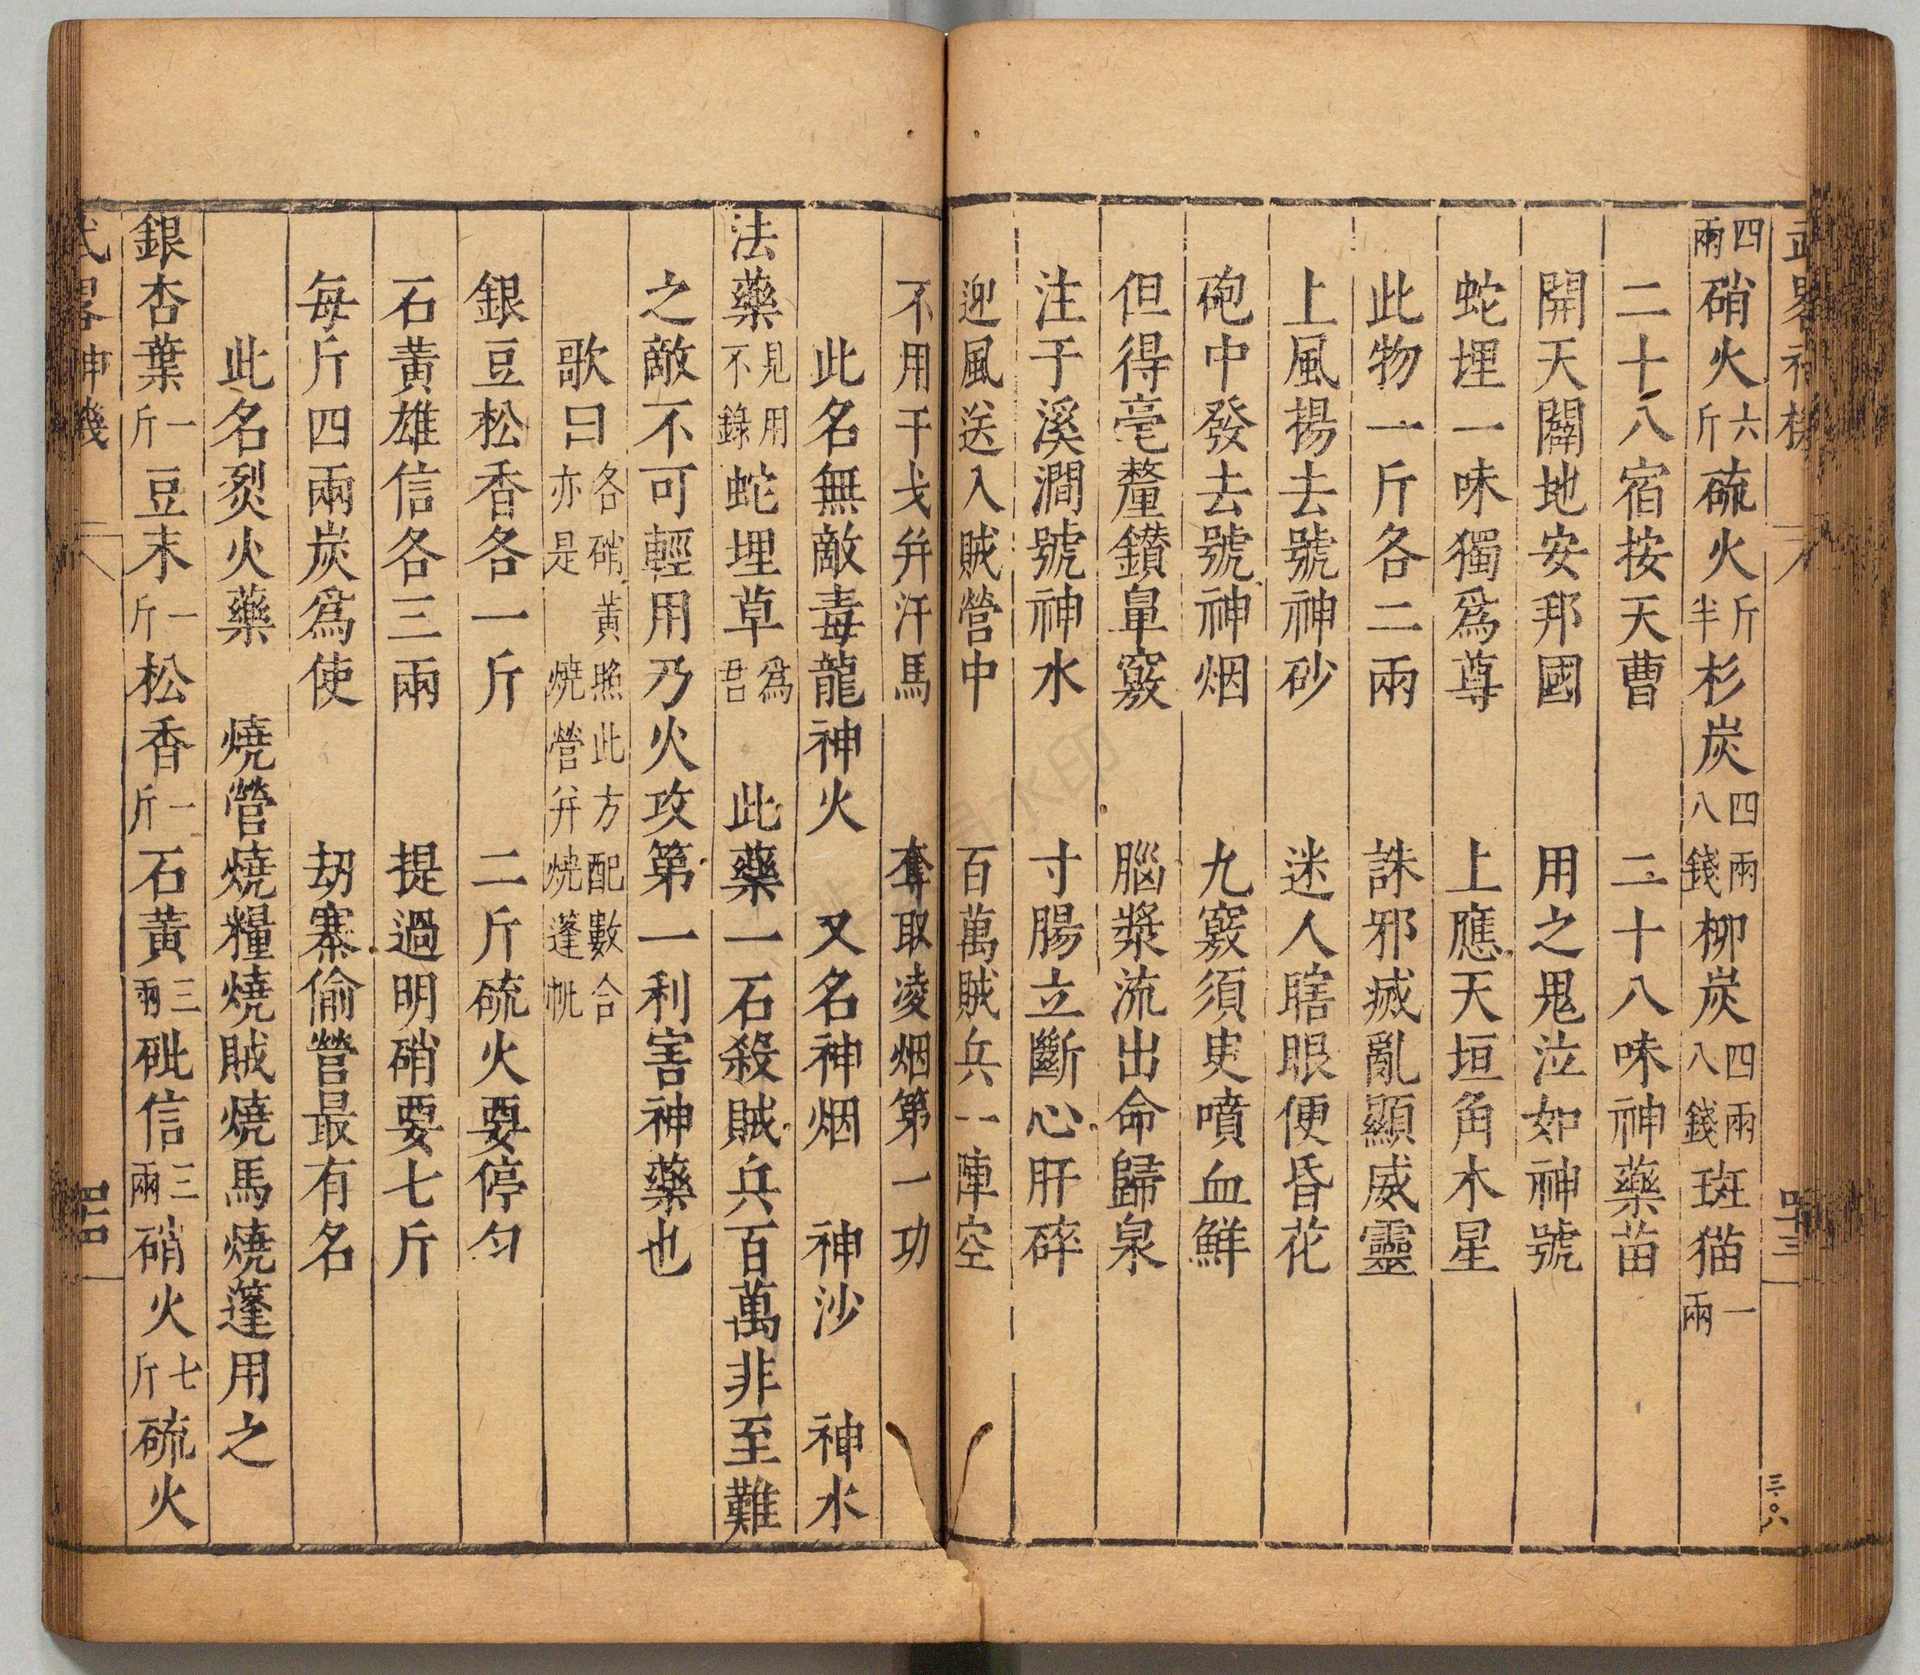 武畧神機
卷
四十三
三〇八
四兩硝火六斤硫火斤半杉炭四兩八錢柳炭四兩八錢斑猫一兩
二十八宿按天曹 二十八味神藥苗
開天闢地安邦國 用之鬼泣如神號
蛇埋一味獨爲尊 上應天垣角木星
此物一斤各二兩 誅邪㓕亂顯威靈
上風揚去號神砂 迷人瞎眼便昏花
砲中發去號神烟 九竅須臾噴血鮮
但得毫釐鑽鼻竅 腦漿流出命歸泉
注于溪澗號神水 寸腸立斷心肝碎
迎風送入賊營中 百萬賊兵一陣空
不用干戈并汗馬 奪取凌烟第一功
此名無敵毒龍神火 又名神烟 神沙 神水
法藥見用不錄蛇埋草爲君 此藥一石殺賊兵百萬非至難
之敵不可輕用乃火攻第一利害神藥也
歌曰各硝黃照此方配數合亦是燒營并燒蓬帆
銀豆松香各一斤 二斤硫火要停勻
石黃雄信各三兩 提過明硝要七斤
每斤四兩炭爲使 刼寨偷營最有名
此名烈火藥 燒營燒糧燒賊燒馬燒蓬用之
銀杏葉一斤豆末一斤松香一斤石黃三兩砒信三兩硝火七斤硫火
武畧神機